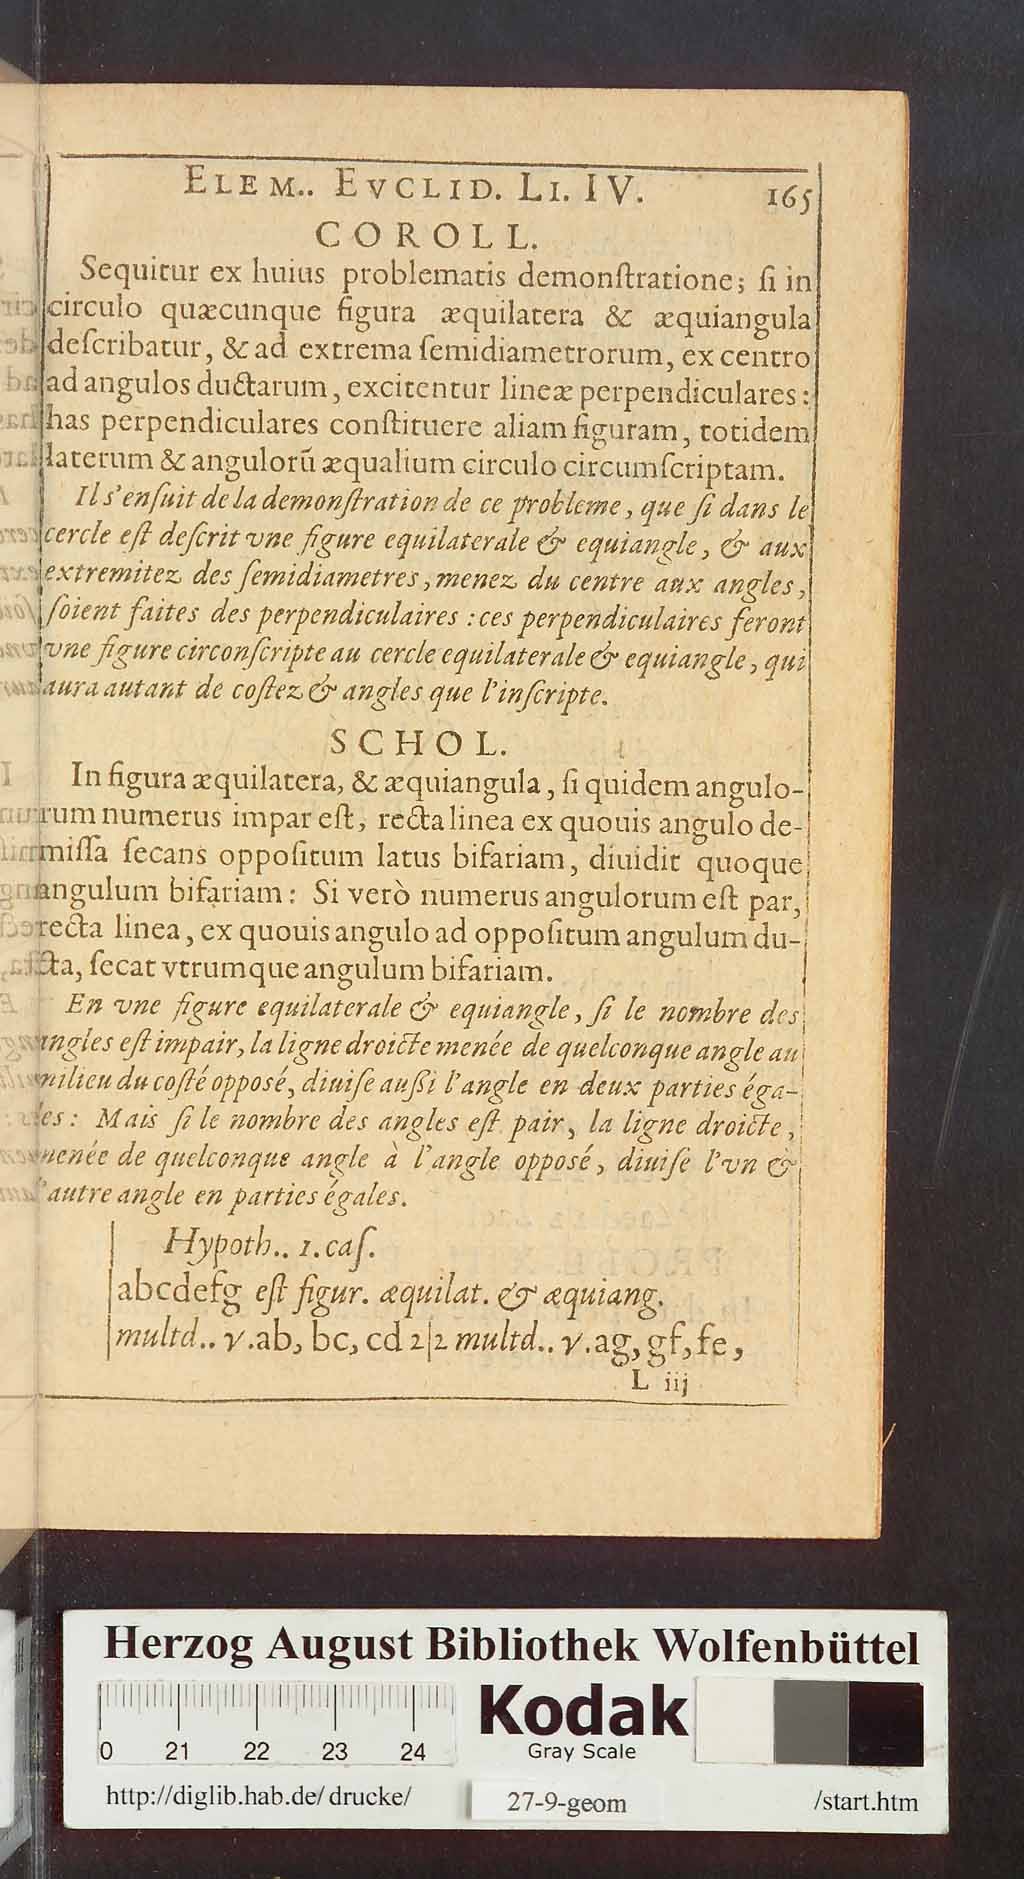 ELEM.. EVCLID. LI. IV. 165
COROLL.
Sequitur ex huius problematis demonſtratione; ſi in
circulo quæcunque figura æquilatera & æquiangula
deſcribatur, & ad extrema ſemidiametrorum, ex centro
ad angulos ductarum, excitentur lineæ perpendiculares:
has perpendiculares conſtituere aliam figuram, totidem
laterum & angulorũ æqualium circulo circumſcriptam.
Il s'enſuit de la demonſtration de ce probleme, que ſi dans le
cercle eſt deſcrit vne figure equilaterale & equiangle, & aux
extremitez des ſemidiametres, menez du centre aux angles,
ſoient faites des perpendiculaires : ces perpendiculaires feront
vne figure circonſcripte au cercle equilaterale & equiangle, qui
aura autant de coſtez & angles que l'inſcripte.
SCHOL.
In figura æquilatera, & æquiangula, ſi quidem angulo-
rum numerus impar eſt, recta linea ex quouis angulo de-
miſſa ſecans oppoſitum latus bifariam, diuidit quoque
angulum bifariam: Si verò numerus angulorum eſt par,
recta linea, ex quouis angulo ad oppoſitum angulum du-
cta, ſecat vtrumque angulum bifariam.
En vne figure equilaterale & equiangle, ſi le nombre des
angles eſt impair, la ligne droicte menée de quelconque angle au
milieu du coſté oppoſé, diuiſe auſſi l'angle en deux parties éga-
les: Mais ſi le nombre des angles eſt pair, la ligne droicte,
menée de quelconque angle à l'angle oppoſé, diuiſe l'vn &
l'autre angle en parties égales.
Hypoth.. 1. caſ.
abcdefg eſt figur. æquilat. & æquiang.
multd.. γ.ab, bc, cd 2|2 multd.. γ.ag, gf, fe,
L iij
Herzog August Bibliothek Wolfenbüttel
0 21 22 23 24
Kodak
Gray Scale
http://diglib.hab.de/ drucke/ 27-9-geom /start.htm